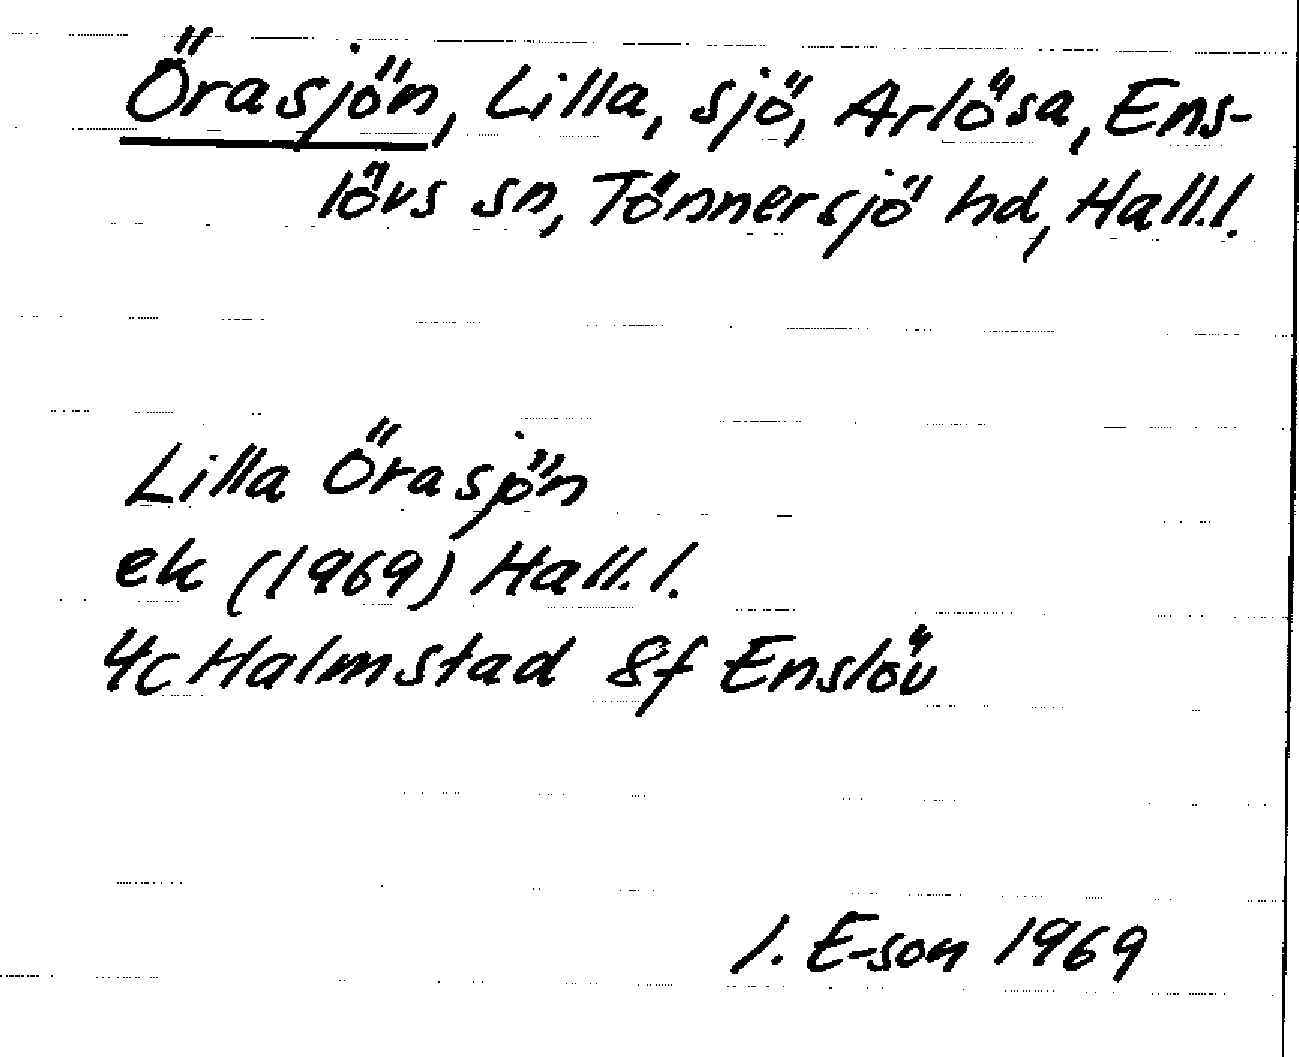 Örasjön, Lilla, sjö, Arlösa, Ens-
lövs sn, Tönnersjö hd, Hall.l.
Lilla Örasjön
ek (1969) Hall.l.
4c Halmstad 8f Enslöv
I. E-son 1969